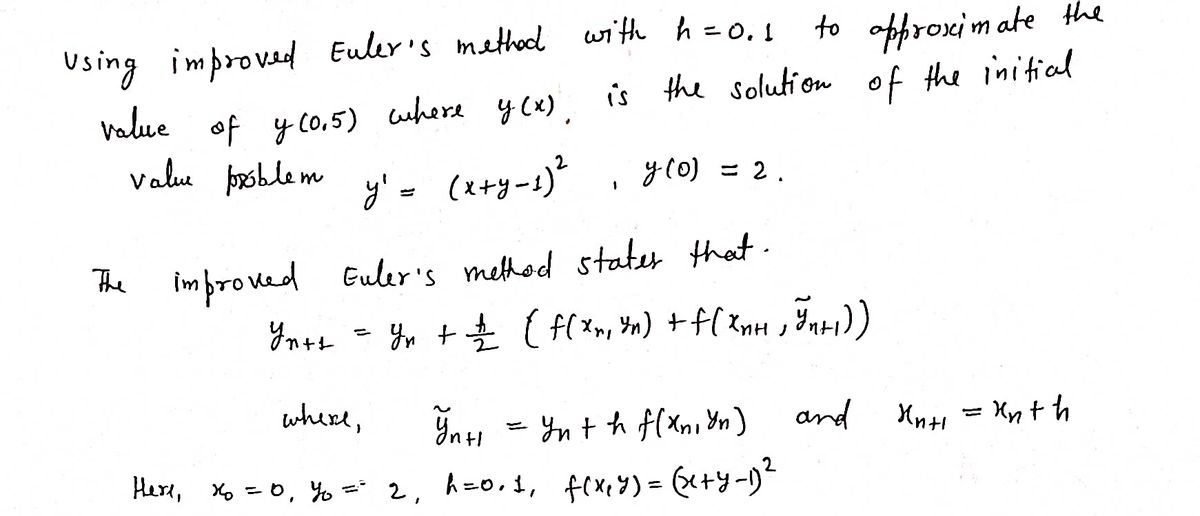 Using improved Euler's method with h = 0.1 to approximate the
value of y(0.5) where y(x). is the solution of the initial
value problem y' = (x+y-1)² , y(0) = 2.
The improved Euler's method states that.
yₙ₊₁ = yₙ + h/2 ( f(xₙ, yₙ) + f(xₙ₊₁, ỹₙ₊₁))
where, ỹₙ₊₁ = yₙ + h f(xₙ, yₙ) and xₙ₊₁ = xₙ + h
Here, x₀ = 0, y₀ = 2, h=0.1, f(x,y) = (x+y-1)²